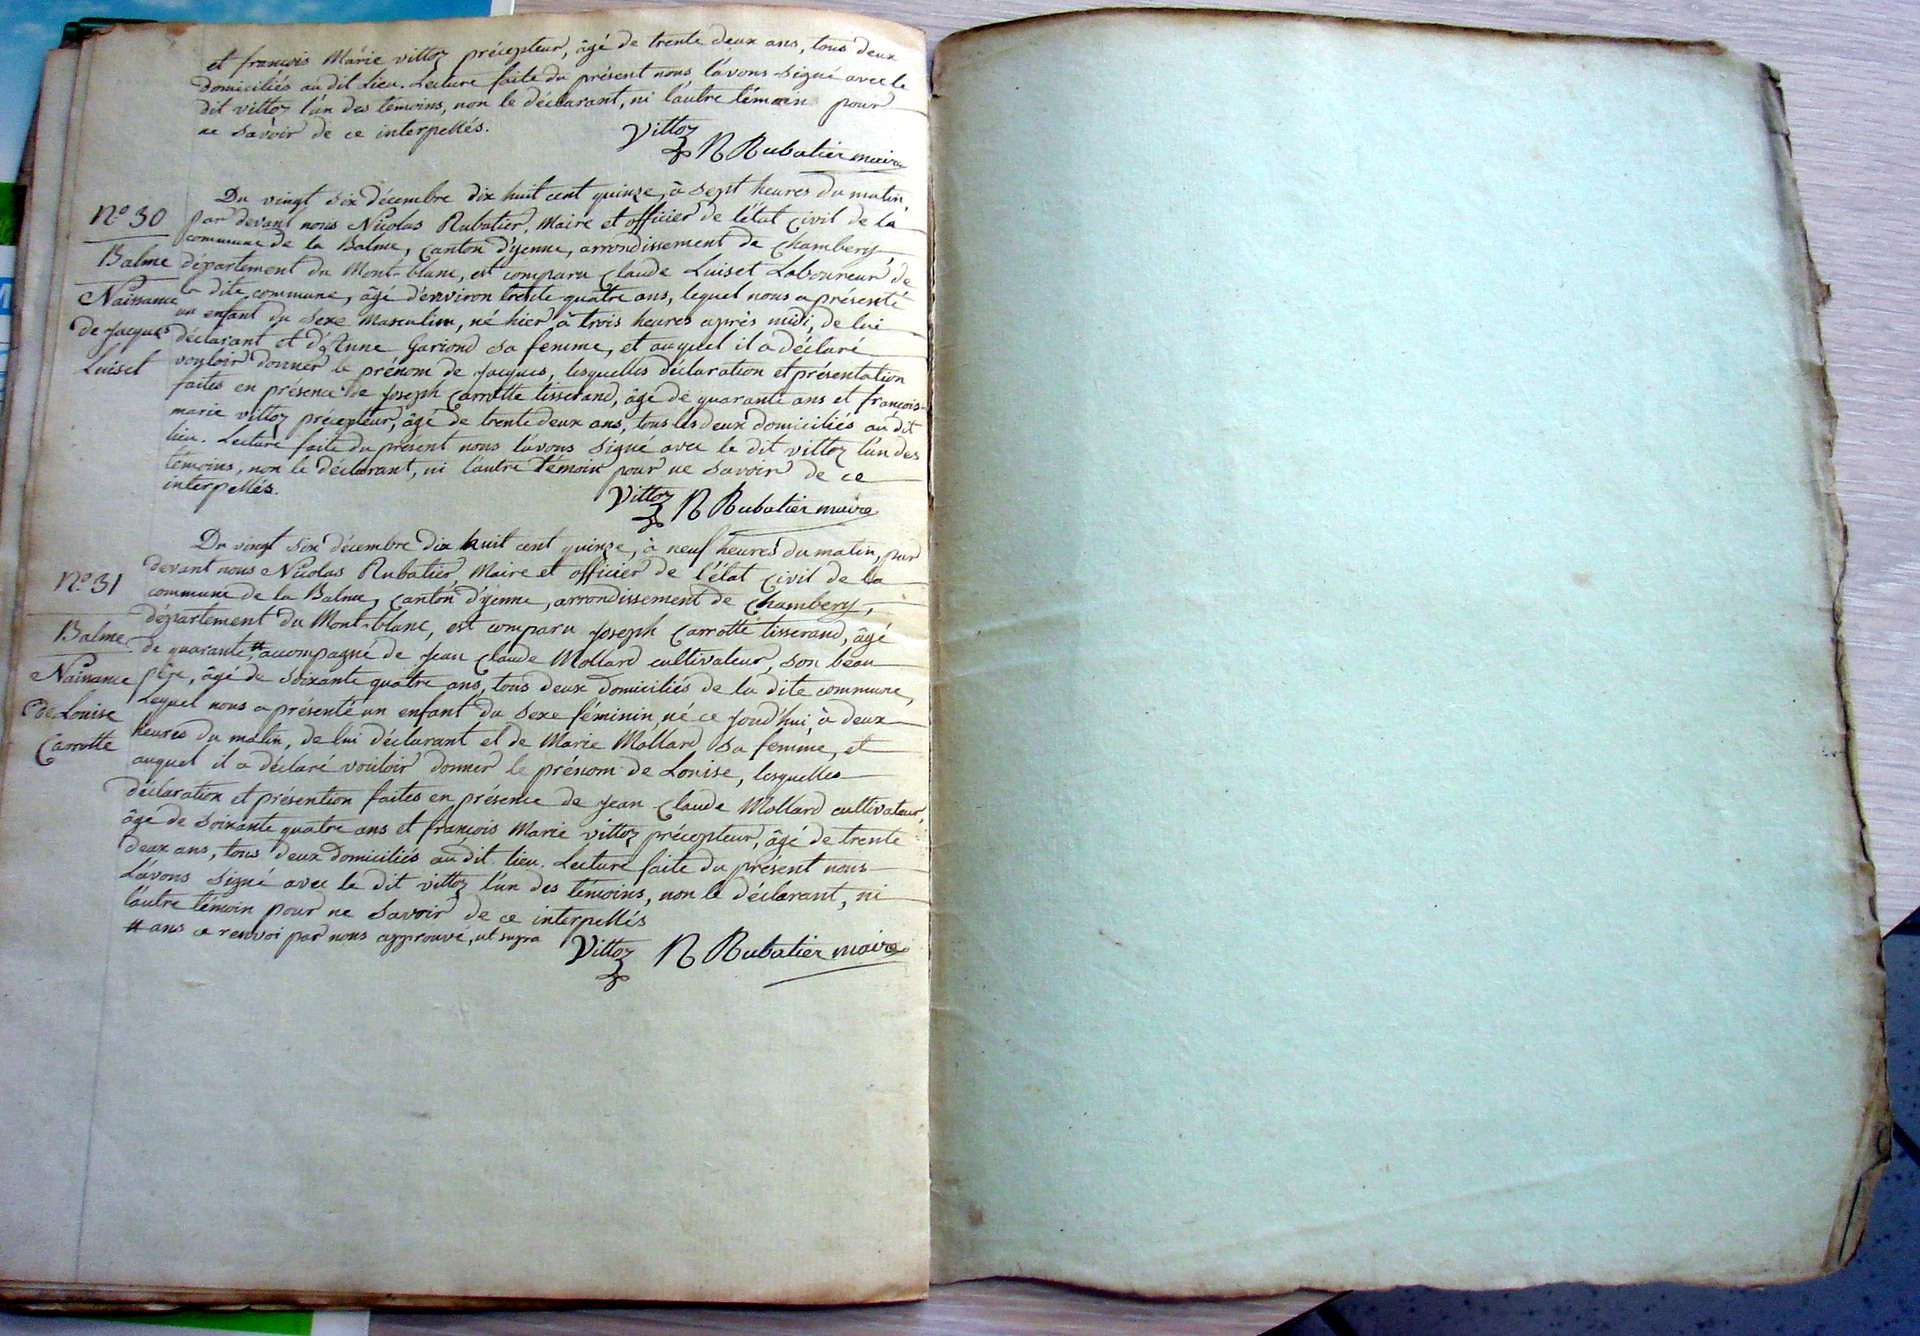 et francois Marie vittoz précepteur, âgé de trente deux ans, tous deux
domiciliés au dit lieu. Lecture faite du présent nous l'avons signé avec le
dit vittoz l'un des témoins, non le déclarant, ni l'autre témoin pour
ne savoir de ce interpellés.
Vittoz
N Rubatier maire
Du vingt six décembre dix huit cent quinze, à sept heures du matin,
N.o 30
par devant nous Nicolas Rubatier, Maire et officier de l'état civil de la
commune de la Balme, canton d'yenne, arrondissement de Chambery
Balme
département du Mont-blanc, est comparu Claude Luiset Laboureur de
la dite commune, âgé d'environ trente quatre ans, lequel nous a présenté
Naissance
un enfant du sexe masculin, né hier à trois heures après midi, de lui
de Jacques
déclarant et d'Anne Gariond sa femme, et auquel il a déclaré
Luiset
vouloir donner le prénom de Jacques, lesquelles déclaration et présentation
faites en présence de Joseph Carrotte tisserand, âgé de quarante ans et françois-
marie vittoz précepteur, âgé de trente deux ans, tous les deux domiciliés au dit
lieu. Lecture faite du présent nous l'avons signé avec le dit vittoz l'un des
témoins, non le déclarant, ni l'autre témoin pour ne savoir de ce
interpellés.
Vittoz
N Rubatier maire
Du vingt six décembre dix huit cent quinze, à neuf heures du matin, par
devant nous Nicolas Rubatier, Maire et officier de l'état civil de la
N.o 31
commune de la Balme, canton d'yenne, arrondissement de Chambery,
département du Mont-blanc, est comparu Joseph Carrotte tisserand, âgé
Balme
de quarante # accompagné de Jean Claude Mollard cultivateur, son beau
Naissance
père, âgé de soixante quatre ans, tous deux domiciliés de la dite commune,
Lequel nous a présenté un enfant du sexe féminin, né ce jourd'hui, à deux
de Louise
heures du matin, de lui déclarant et de Marie Mollard sa femme, et
Carrotte
auquel il a déclaré vouloir donner le prénom de Louise, lesquelles
déclaration et présention faites en présence de Jean Claude Mollard cultivateur,
âgé de soixante quatre ans et francois Marie vittoz précepteur, âgé de trente
deux ans, tous deux domiciliés au dit lieu. Lecture faite du présent nous
l'avons signé avec le dit vittoz l'un des témoins, non le déclarant, ni
l'autre témoin pour ne savoir de ce interpellés
# ans ce renvoi par nous approuvé, ut supra
Vittoz
N Rubatier maire